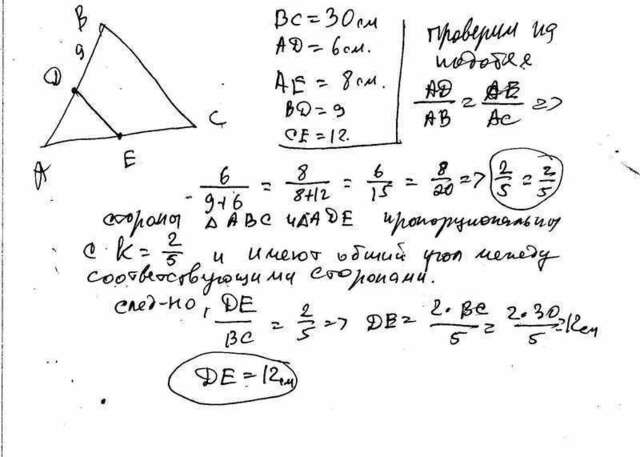 B
9
D
A
E
C
BC = 30 см
AD = 6 см.
AE = 8 см.
BD = 9
CE = 12.
проверим на
подобие
AD/AB = AE/AC =>
6/(9+6) = 8/(8+12) = 6/15 = 8/20 => 2/5 = 2/5
стороны △ABC и △ADE пропорциональны
с K = 2/5 и имеют общий угол между
соответствующими сторонами.
след-но, DE/BC = 2/5 => DE = 2·BC/5 = 2·30/5 = 12см
DE = 12см